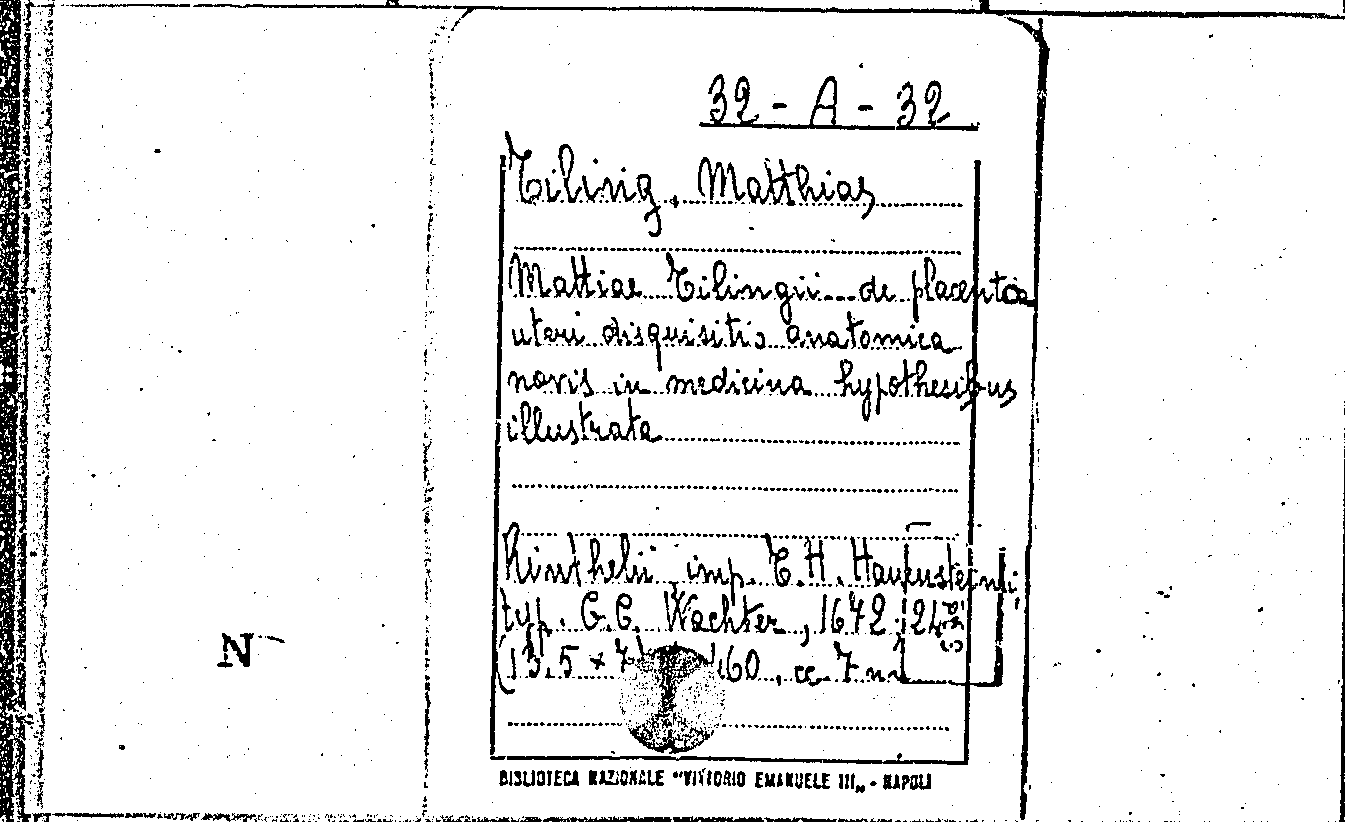 32 - A - 32
Tiling, Matthias
Mattiae Tilingii... de placenta
uteri disquisitio anatomica
novis in medicina hypothesibus
illustrata
Rinthelii imp. T.H. Hauensteinii;
typ. G.C. Wächter, 1672; 24°
(13.5 x 7 160, cc. 7 nn
N
BIBLIOTECA NAZIONALE "VITTORIO EMANUELE III„ - NAPOLI